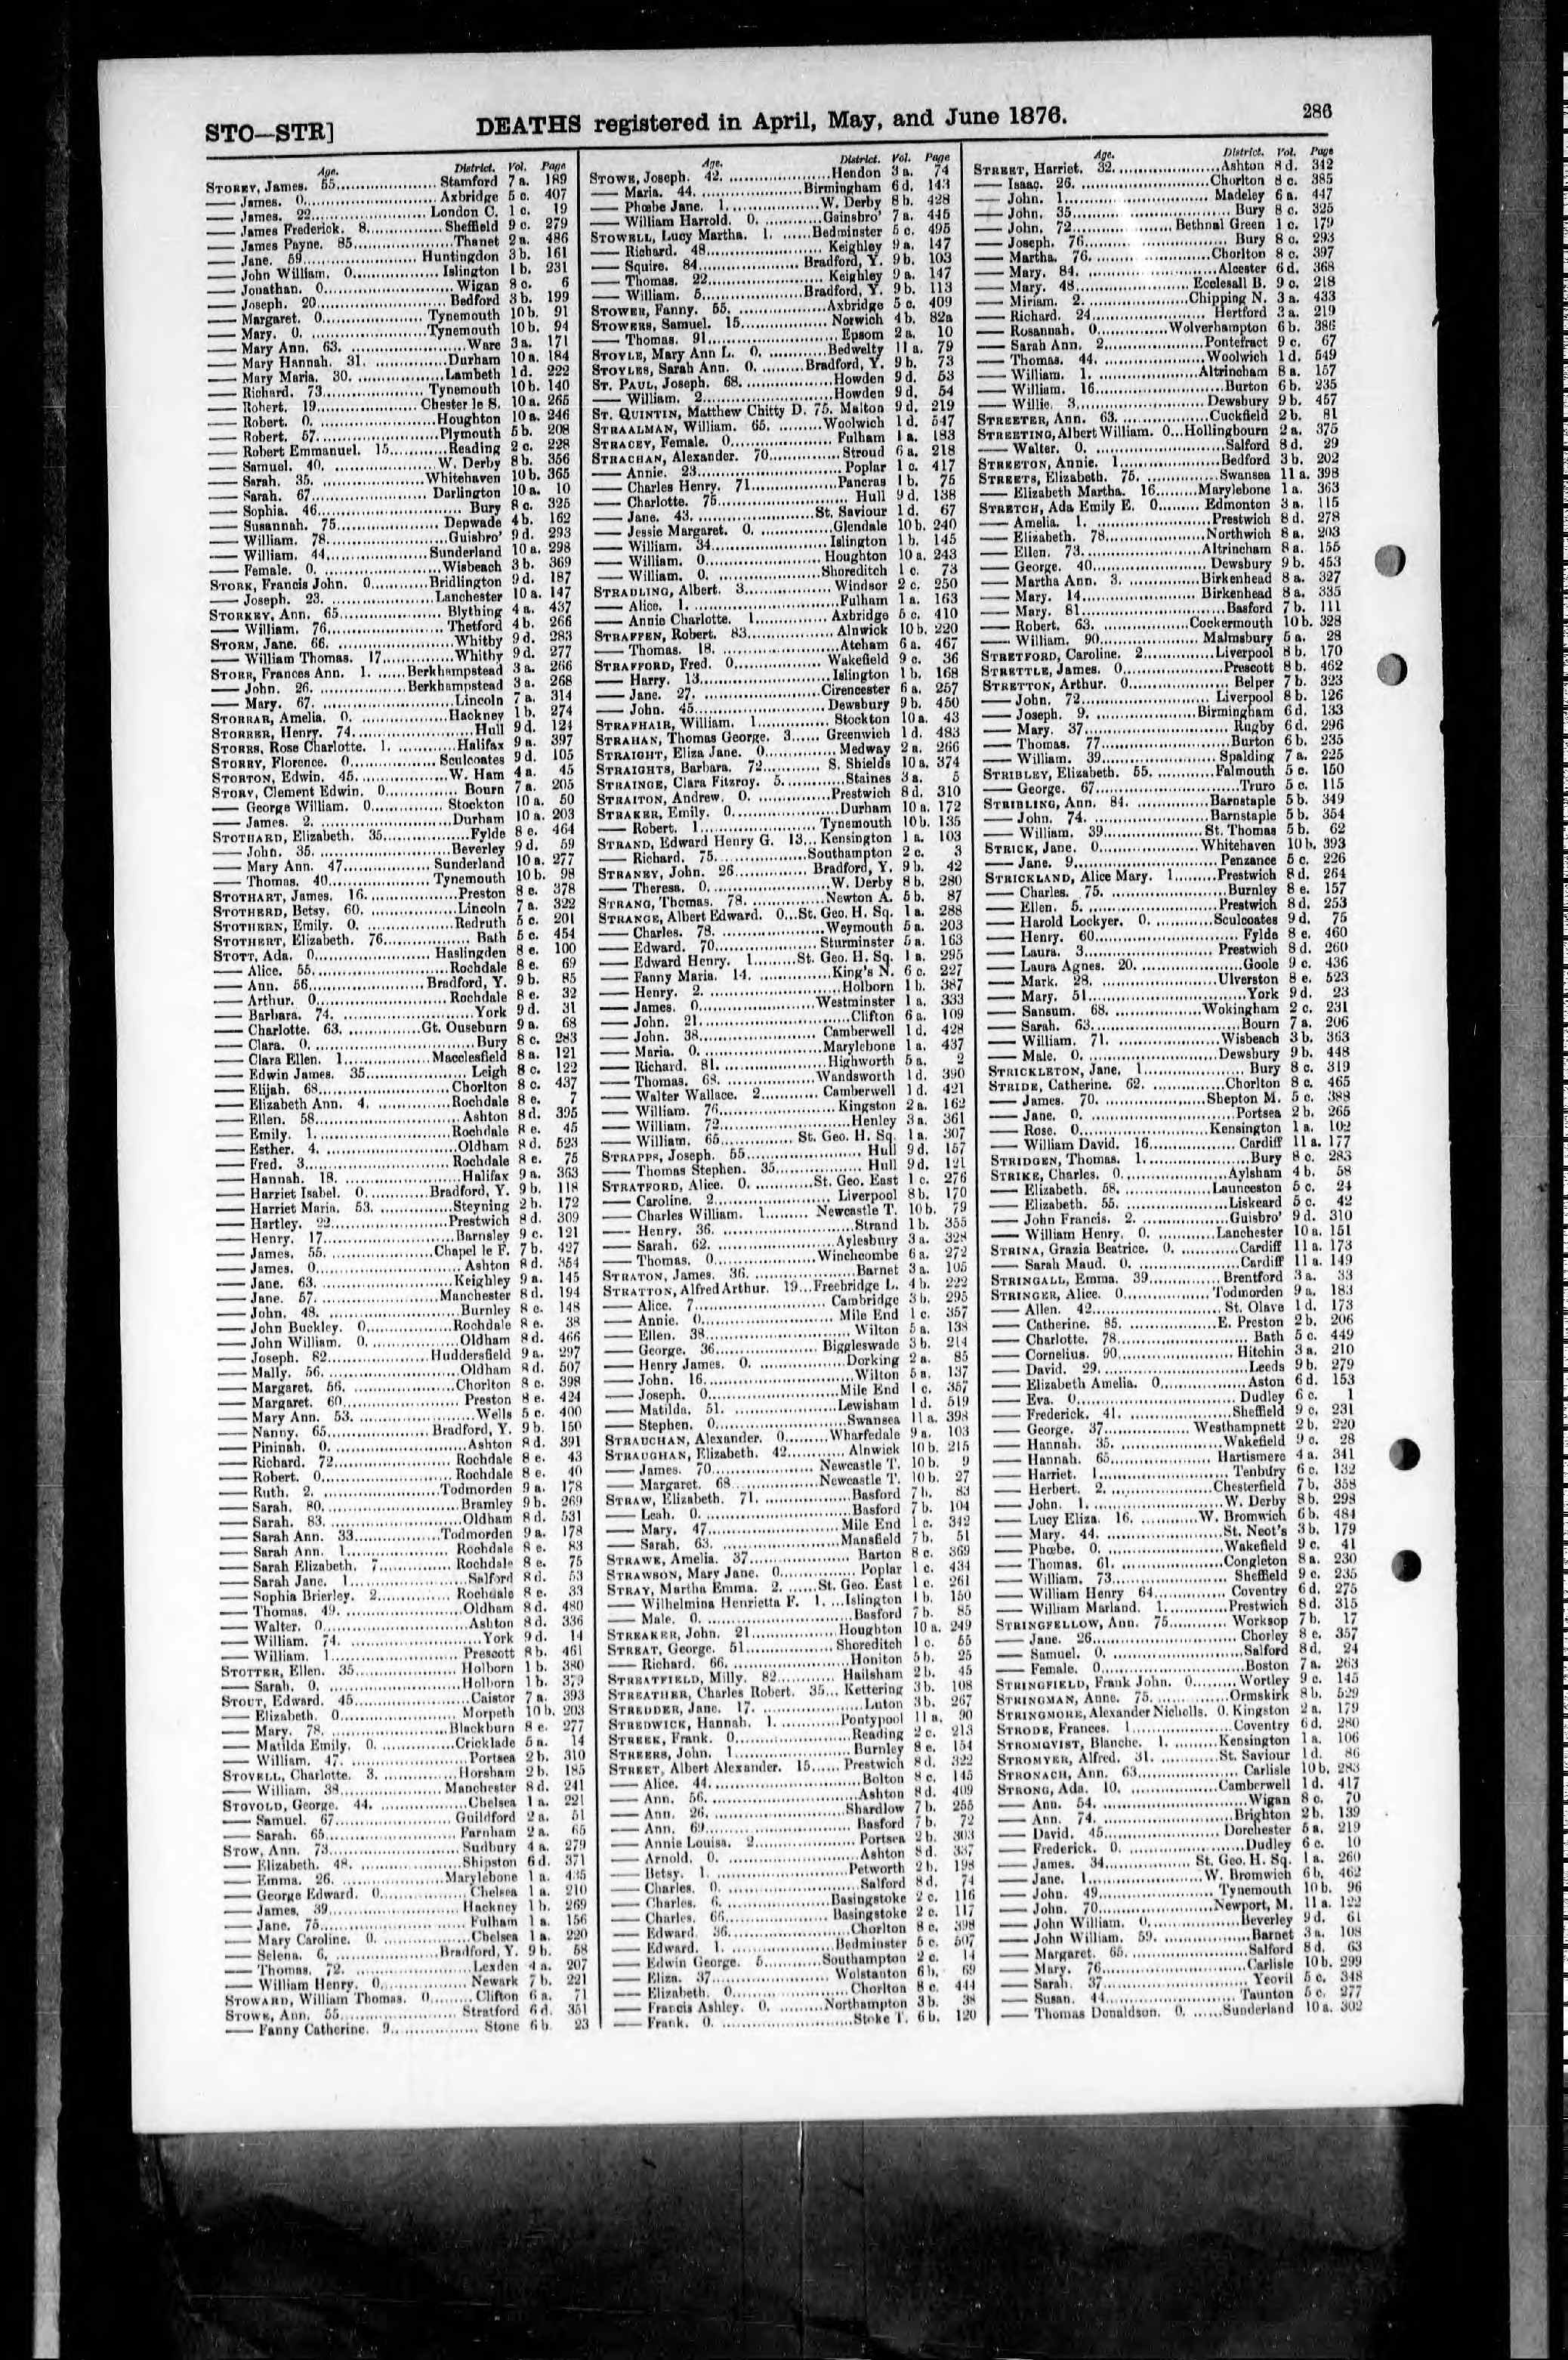 STO—STR]
DEATHS registered in April, May, and June 1876.
286
Age. District. Vol. Page
STOREY, James. 55. Stamford 7 a. 189
— James. 0. Axbridge 5 c. 407
— James. 22. London C. 1 c. 19
— James Frederick. 8. Sheffield 9 c. 279
— James Payne. 85. Thanet 2 a. 486
— Jane. 59. Huntingdon 3 b. 161
— John William. 0. Islington 1 b. 231
— Jonathan. 0. Wigan 8 c. 6
— Joseph. 20. Bedford 3 b. 199
— Margaret. 0. Tynemouth 10 b. 91
— Mary. 0. Tynemouth 10 b. 94
— Mary Ann. 63. Ware 3 a. 171
— Mary Hannah. 31. Durham 10 a. 184
— Mary Maria. 30. Lambeth 1 d. 222
— Richard. 73. Tynemouth 10 b. 140
— Robert. 19. Chester le S. 10 a. 265
— Robert. 0. Houghton 10 a. 246
— Robert. 57. Plymouth 5 b. 208
— Robert Emmanuel. 15. Reading 2 c. 228
— Samuel. 40. W. Derby 8 b. 356
— Sarah. 35. Whitehaven 10 b. 365
— Sarah. 67. Darlington 10 a. 10
— Sophia. 46. Bury 8 c. 325
— Susannah. 75. Depwade 4 b. 162
— William. 78. Guisbro' 9 d. 293
— William. 44. Sunderland 10 a. 298
— Female. 0. Wisbeach 3 b. 369
STORK, Francis John. 0. Bridlington 9 d. 187
— Joseph. 23. Lanchester 10 a. 147
STORKEY, Ann. 65. Blything 4 a. 437
— William. 76. Thetford 4 b. 266
STORM, Jane. 66. Whitby 9 d. 283
— William Thomas. 17. Whitby 9 d. 277
STORR, Frances Ann. 1. Berkhampstead 3 a. 266
— John. 26. Berkhampstead 3 a. 268
— Mary. 67. Lincoln 7 a. 314
STORRAR, Amelia. 0. Hackney 1 b. 274
STORRER, Henry. 74. Hull 9 d. 124
STORRS, Rose Charlotte. 1. Halifax 9 a. 397
STORRY, Florence. 0. Sculcoates 9 d. 105
STORTON, Edwin. 45. W. Ham 4 a. 45
STORY, Clement Edwin. 0. Bourn 7 a. 205
— George William. 0. Stockton 10 a. 50
— James. 2. Durham 10 a. 203
STOTHARD, Elizabeth. 35. Fylde 8 e. 464
— John. 35. Beverley 9 d. 59
— Mary Ann. 47. Sunderland 10 a. 277
— Thomas. 40. Tynemouth 10 b. 98
STOTHART, James. 16. Preston 8 e. 378
STOTHERD, Betsy. 60. Lincoln 7 a. 322
STOTHERN, Emily. 0. Redruth 5 c. 201
STOTHERT, Elizabeth. 76. Bath 5 c. 454
STOTT, Ada. 0. Haslingden 8 e. 100
— Alice. 55. Rochdale 8 e. 69
— Ann. 56. Bradford, Y. 9 b. 85
— Arthur. 0. Rochdale 8 e. 32
— Barbara. 74. York 9 d. 31
— Charlotte. 63. Gt. Ouseburn 9 a. 68
— Clara. 0. Bury 8 c. 283
— Clara Ellen. 1. Macclesfield 8 a. 121
— Edwin James. 35. Leigh 8 c. 122
— Elijah. 68. Chorlton 8 c. 437
— Elizabeth Ann. 4. Rochdale 8 e. 7
— Ellen. 58. Ashton 8 d. 395
— Emily. 1. Rochdale 8 e. 45
— Esther. 4. Oldham 8 d. 523
— Fred. 3. Rochdale 8 e. 75
— Hannah. 18. Halifax 9 a. 363
— Harriet Isabel. 0. Bradford, Y. 9 b. 118
— Harriet Maria. 53. Steyning 2 b. 172
— Hartley. 22. Prestwich 8 d. 309
— Henry. 17. Barnsley 9 c. 121
— James. 55. Chapel le F. 7 b. 427
— James. 0. Ashton 8 d. 354
— Jane. 63. Keighley 9 a. 145
— Jane. 57. Manchester 8 d. 194
— John. 48. Burnley 8 e. 148
— John Buckley. 0. Rochdale 8 e. 38
— John William. 0. Oldham 8 d. 466
— Joseph. 82. Huddersfield 9 a. 297
— Mally. 56. Oldham 8 d. 507
— Margaret. 56. Chorlton 8 c. 398
— Margaret. 60. Preston 8 e. 424
— Mary Ann. 53. Wells 5 c. 400
— Nanny. 65. Bradford, Y. 9 b. 150
— Pininah. 0. Ashton 8 d. 391
— Richard. 72. Rochdale 8 e. 43
— Robert. 0. Rochdale 8 e. 40
— Ruth. 2. Todmorden 9 a. 178
— Sarah. 80. Bramley 9 b. 269
— Sarah. 83. Oldham 8 d. 531
— Sarah Ann. 33. Todmorden 9 a. 178
— Sarah Ann. 1. Rochdale 8 e. 83
— Sarah Elizabeth. 7. Rochdale 8 e. 75
— Sarah Jane. 1. Salford 8 d. 53
— Sophia Brierley. 2. Rochdale 8 e. 33
— Thomas. 49. Oldham 8 d. 480
— Walter. 0. Ashton 8 d. 336
— William. 74. York 9 d. 14
— William. 1. Prescott 8 b. 461
STOTTER, Ellen. 35. Holborn 1 b. 380
— Sarah. 0. Holborn 1 b. 379
STOUT, Edward. 45. Caistor 7 a. 393
— Elizabeth. 0. Morpeth 10 b. 203
— Mary. 78. Blackburn 8 e. 277
— Matilda Emily. 0. Cricklade 5 a. 14
— William. 47. Portsea 2 b. 310
STOVELL, Charlotte. 3. Horsham 2 b. 185
— William. 38. Manchester 8 d. 241
STOVOLD, George. 44. Chelsea 1 a. 221
— Samuel. 67. Guildford 2 a. 51
— Sarah. 65. Farnham 2 a. 65
STOW, Ann. 73. Sudbury 4 a. 279
— Elizabeth. 48. Shipston 6 d. 371
— Emma. 26. Marylebone 1 a. 435
— George Edward. 0. Chelsea 1 a. 210
— James. 39. Hackney 1 b. 269
— Jane. 75. Fulham 1 a. 156
— Mary Caroline. 0. Chelsea 1 a. 220
— Selena. 6. Bradford, Y. 9 b. 58
— Thomas. 72. Lexden 4 a. 207
— William Henry. 0. Newark 7 b. 221
STOWARD, William Thomas. 0. Clifton 6 a. 71
STOWE, Ann. 55. Stratford 6 d. 351
— Fanny Catherine. 9. Stone 6 b. 23
Age. District. Vol. Page
STOWE, Joseph. 42. Hendon 3 a. 74
— Maria. 44. Birmingham 6 d. 143
— Phœbe Jane. 1. W. Derby 8 b. 428
— William Harrold. 0. Gainsbro' 7 a. 445
STOWELL, Lucy Martha. 1. Bedminster 5 c. 495
— Richard. 48. Keighley 9 a. 147
— Squire. 84. Bradford, Y. 9 b. 103
— Thomas. 22. Keighley 9 a. 147
— William. 5. Bradford, Y. 9 b. 113
STOWER, Fanny. 55. Axbridge 5 c. 409
STOWERS, Samuel. 15. Norwich 4 b. 82a
— Thomas. 91. Epsom 2 a. 10
STOYLE, Mary Ann L. 0. Bedwelty 11 a. 79
STOYLES, Sarah Ann. 0. Bradford, Y. 9 b. 73
ST. PAUL, Joseph. 68. Howden 9 d. 53
— William. 2. Howden 9 d. 54
ST. QUINTIN, Matthew Chitty D. 75. Malton 9 d. 219
STRAALMAN, William. 65. Woolwich 1 d. 547
STRACEY, Female. 0. Fulham 1 a. 183
STRACHAN, Alexander. 70. Stroud 6 a. 218
— Annie. 23. Poplar 1 c. 417
— Charles Henry. 71. Pancras 1 b. 75
— Charlotte. 75. Hull 9 d. 138
— Jane. 43. St. Saviour 1 d. 67
— Jessie Margaret. 0. Glendale 10 b. 240
— William. 34. Islington 1 b. 145
— William. 0. Houghton 10 a. 243
— William. 0. Shoreditch 1 c. 73
STRADLING, Albert. 3. Windsor 2 c. 250
— Alice. 1. Fulham 1 a. 163
— Annie Charlotte. 1. Axbridge 5 c. 410
STRAFFEN, Robert. 83. Alnwick 10 b. 220
— Thomas. 18. Atcham 6 a. 467
STRAFFORD, Fred. 0. Wakefield 9 c. 36
— Harry. 13. Islington 1 b. 168
— Jane. 27. Cirencester 6 a. 257
— John. 45. Dewsbury 9 b. 450
STRAFHAIR, William. 1. Stockton 10 a. 43
STRAHAN, Thomas George. 3. Greenwich 1 d. 483
STRAIGHT, Eliza Jane. 0. Medway 2 a. 266
STRAIGHTS, Barbara. 72. S. Shields 10 a. 374
STRAINGE, Clara Fitzroy. 5. Staines 3 a. 5
STRAITON, Andrew. 0. Prestwich 8 d. 310
STRAKER, Emily. 0. Durham 10 a. 172
— Robert. 1. Tynemouth 10 b. 135
STRAND, Edward Henry G. 13. Kensington 1 a. 103
— Richard. 75. Southampton 2 c. 3
STRANEY, John. 26. Bradford, Y. 9 b. 42
— Theresa. 0. W. Derby 8 b. 280
STRANG, Thomas. 78. Newton A. 5 b. 87
STRANGE, Albert Edward. 0. St. Geo. H. Sq. 1 a. 288
— Charles. 78. Weymouth 5 a. 203
— Edward. 70. Sturminster 5 a. 163
— Edward Henry. 1. St. Geo. H. Sq. 1 a. 295
— Fanny Maria. 14. King's N. 6 c. 227
— Henry. 2. Holborn 1 b. 387
— James. 0. Westminster 1 a. 333
— John. 21. Clifton 6 a. 109
— John. 38. Camberwell 1 d. 428
— Maria. 0. Marylebone 1 a. 437
— Richard. 81. Highworth 5 a. 2
— Thomas. 68. Wandsworth 1 d. 390
— Walter Wallace. 2. Camberwell 1 d. 421
— William. 76. Kingston 2 a. 162
— William. 72. Henley 3 a. 361
— William. 65. St. Geo. H. Sq. 1 a. 307
STRAPPS, Joseph. 55. Hull 9 d. 157
— Thomas Stephen. 35. Hull 9 d. 121
STRATFORD, Alice. 0. St. Geo. East 1 c. 276
— Caroline. 2. Liverpool 8 b. 170
— Charles William. 1. Newcastle T. 10 b. 79
— Henry. 36. Strand 1 b. 355
— Sarah. 62. Aylesbury 3 a. 328
— Thomas. 0. Winchcombe 6 a. 272
STRATON, James. 36. Barnet 3 a. 105
STRATTON, Alfred Arthur. 19. Freebridge L. 4 b. 222
— Alice. 7. Cambridge 3 b. 295
— Annie. 0. Mile End 1 c. 357
— Ellen. 38. Wilton 5 a. 138
— George. 36. Biggleswade 3 b. 214
— Henry James. 0. Dorking 2 a. 85
— John. 16. Wilton 5 a. 137
— Joseph. 0. Mile End 1 c. 357
— Matilda. 51. Lewisham 1 d. 519
— Stephen. 0. Swansea 11 a. 398
STRAUCHAN, Alexander. 0. Wharfedale 9 a. 103
STRAUGHAN, Elizabeth. 42. Alnwick 10 b. 215
— James. 70. Newcastle T. 10 b. 9
— Margaret. 68. Newcastle T. 10 b. 27
STRAW, Elizabeth. 71. Basford 7 b. 83
— Leah. 0. Basford 7 b. 104
— Mary. 47. Mile End 1 c. 342
— Sarah. 63. Mansfield 7 b. 51
STRAWE, Amelia. 37. Barton 8 c. 369
STRAWSON, Mary Jane. 0. Poplar 1 c. 434
STRAY, Martha Emma. 2. St. Geo. East 1 c. 261
— Wilhelmina Henrietta F. 1. Islington 1 b. 150
— Male. 0. Basford 7 b. 85
STREAKER, John. 21. Houghton 10 a. 249
STREAT, George. 51. Shoreditch 1 c. 55
— Richard. 66. Honiton 5 b. 25
STREATFIELD, Milly. 82. Hailsham 2 b. 45
STREATHER, Charles Robert. 35. Kettering 3 b. 108
STREDDER, Jane. 17. Luton 3 b. 267
STREDWICK, Hannah. 1. Pontypool 11 a. 90
STREEK, Frank. 0. Reading 2 c. 213
STREERS, John. 1. Burnley 8 e. 154
STREET, Albert Alexander. 15. Prestwich 8 d. 322
— Alice. 44. Bolton 8 c. 145
— Ann. 56. Ashton 8 d. 409
— Ann. 26. Shardlow 7 b. 255
— Ann. 69. Basford 7 b. 72
— Annie Louisa. 2. Portsea 2 b. 303
— Arnold. 0. Ashton 8 d. 337
— Betsy. 1. Petworth 2 b. 198
— Charles. 0. Salford 8 d. 74
— Charles. 6. Basingstoke 2 c. 116
— Charles. 66. Basingstoke 2 c. 117
— Edward. 36. Chorlton 8 c. 398
— Edward. 1. Bedminster 5 c. 507
— Edwin George. 5. Southampton 2 c. 14
— Eliza. 37. Wolstanton 6 b. 69
— Elizabeth. 0. Chorlton 8 c. 444
— Francis Ashley. 0. Northampton 3 b. 38
— Frank. 0. Stoke T. 6 b. 120
Age. District. Vol. Page
STREET, Harriet. 32. Ashton 8 d. 342
— Isaac. 26. Chorlton 8 c. 385
— John. 1. Madeley 6 a. 447
— John. 35. Bury 8 c. 325
— John. 72. Bethnal Green 1 c. 179
— Joseph. 76. Bury 8 c. 293
— Martha. 76. Chorlton 8 c. 397
— Mary. 84. Alcester 6 d. 368
— Mary. 48. Ecclesall B. 9 c. 218
— Miriam. 2. Chipping N. 3 a. 433
— Richard. 24. Hertford 3 a. 219
— Rosannah. 0. Wolverhampton 6 b. 386
— Sarah Ann. 2. Pontefract 9 c. 67
— Thomas. 44. Woolwich 1 d. 549
— William. 1. Altrincham 8 a. 157
— William. 16. Burton 6 b. 235
— Willie. 3. Dewsbury 9 b. 457
STREETER, Ann. 63. Cuckfield 2 b. 81
STREETING, Albert William. 0. Hollingbourn 2 a. 375
— Walter. 0. Salford 8 d. 29
STREETON, Annie. 1. Bedford 3 b. 202
STREETS, Elizabeth. 75. Swansea 11 a. 398
— Elizabeth Martha. 16. Marylebone 1 a. 363
STRETCH, Ada Emily E. 0. Edmonton 3 a. 115
— Amelia. 1. Prestwich 8 d. 278
— Elizabeth. 78. Northwich 8 a. 203
— Ellen. 73. Altrincham 8 a. 155
— George. 40. Dewsbury 9 b. 453
— Martha Ann. 3. Birkenhead 8 a. 327
— Mary. 14. Birkenhead 8 a. 335
— Mary. 81. Basford 7 b. 111
— Robert. 63. Cockermouth 10 b. 328
— William. 90. Malmsbury 5 a. 28
STRETFORD, Caroline. 2. Liverpool 8 b. 170
STRETTLE, James. 0. Prescott 8 b. 462
STRETTON, Arthur. 0. Belper 7 b. 323
— John. 72. Liverpool 8 b. 126
— Joseph. 9. Birmingham 6 d. 133
— Mary. 37. Rugby 6 d. 296
— Thomas. 77. Burton 6 b. 235
— William. 39. Spalding 7 a. 225
STRIBLEY, Elizabeth. 55. Falmouth 5 c. 150
— George. 67. Truro 5 c. 115
STRIBLING, Ann. 84. Barnstaple 5 b. 349
— John. 74. Barnstaple 5 b. 354
— William. 39. St. Thomas 5 b. 62
STRICK, Jane. 0. Whitehaven 10 b. 393
— Jane. 9. Penzance 5 c. 226
STRICKLAND, Alice Mary. 1. Prestwich 8 d. 264
— Charles. 75. Burnley 8 e. 157
— Ellen. 5. Prestwich 8 d. 253
— Harold Lockyer. 0. Sculcoates 9 d. 75
— Henry. 60. Fylde 8 e. 460
— Laura. 3. Prestwich 8 d. 260
— Laura Agnes. 20. Goole 9 c. 436
— Mark. 28. Ulverston 8 e. 523
— Mary. 51. York 9 d. 23
— Sansum. 68. Wokingham 2 c. 231
— Sarah. 63. Bourn 7 a. 206
— William. 71. Wisbeach 3 b. 363
— Male. 0. Dewsbury 9 b. 448
STRICKLETON, Jane. 1. Bury 8 c. 319
STRIDE, Catherine. 62. Chorlton 8 c. 465
— James. 70. Shepton M. 5 c. 388
— Jane. 0. Portsea 2 b. 265
— Rose. 0. Kensington 1 a. 102
— William David. 16. Cardiff 11 a. 177
STRIDGEN, Thomas. 1. Bury 8 c. 283
STRIKE, Charles. 0. Aylsham 4 b. 58
— Elizabeth. 58. Launceston 5 c. 24
— Elizabeth. 55. Liskeard 5 c. 42
— John Francis. 2. Guisbro' 9 d. 310
— William Henry. 0. Lanchester 10 a. 151
STRINA, Grazia Beatrice. 0. Cardiff 11 a. 173
— Sarah Maud. 0. Cardiff 11 a. 149
STRINGALL, Emma. 39. Brentford 3 a. 33
STRINGER, Alice. 0. Todmorden 9 a. 183
— Allen. 42. St. Olave 1 d. 173
— Catherine. 85. E. Preston 2 b. 206
— Charlotte. 78. Bath 5 c. 449
— Cornelius. 90. Hitchin 3 a. 210
— David. 29. Leeds 9 b. 279
— Elizabeth Amelia. 0. Aston 6 d. 153
— Eva. 0. Dudley 6 c. 1
— Frederick. 41. Sheffield 9 c. 231
— George. 37. Westhampnett 2 b. 220
— Hannah. 35. Wakefield 9 c. 28
— Hannah. 65. Hartismere 4 a. 341
— Harriet. 1. Tenbury 6 c. 132
— Herbert. 2. Chesterfield 7 b. 358
— John. 1. W. Derby 8 b. 298
— Lucy Eliza. 16. W. Bromwich 6 b. 484
— Mary. 44. St. Neot's 3 b. 179
— Phœbe. 0. Wakefield 9 c. 41
— Thomas. 61. Congleton 8 a. 230
— William. 73. Sheffield 9 c. 235
— William Henry 64. Coventry 6 d. 275
— William Marland. 1. Prestwich 8 d. 315
STRINGFELLOW, Ann. 75. Worksop 7 b. 17
— Jane. 26. Chorley 8 e. 357
— Samuel. 0. Salford 8 d. 24
— Female. 0. Boston 7 a. 263
STRINGFIELD, Frank John. 0. Wortley 9 c. 145
STRINGMAN, Anne. 75. Ormskirk 8 b. 529
STRINGMORE, Alexander Nicholls. 0. Kingston 2 a. 179
STRODE, Frances. 1. Coventry 6 d. 280
STROMQVIST, Blanche. 1. Kensington 1 a. 106
STROMYER, Alfred. 31. St. Saviour 1 d. 86
STRONACH, Ann. 63. Carlisle 10 b. 283
STRONG, Ada. 10. Camberwell 1 d. 417
— Ann. 54. Wigan 8 c. 70
— Ann. 74. Brighton 2 b. 139
— David. 45. Dorchester 5 a. 219
— Frederick. 0. Dudley 6 c. 10
— James. 34. St. Geo. H. Sq. 1 a. 260
— Jane. 1. W. Bromwich 6 b. 462
— John. 49. Tynemouth 10 b. 96
— John. 70. Newport, M. 11 a. 122
— John William. 0. Beverley 9 d. 61
— John William. 59. Barnet 3 a. 108
— Margaret. 65. Salford 8 d. 63
— Mary. 76. Carlisle 10 b. 299
— Sarah. 37. Yeovil 5 c. 348
— Susan. 44. Taunton 5 c. 277
— Thomas Donaldson. 0. Sunderland 10 a. 302